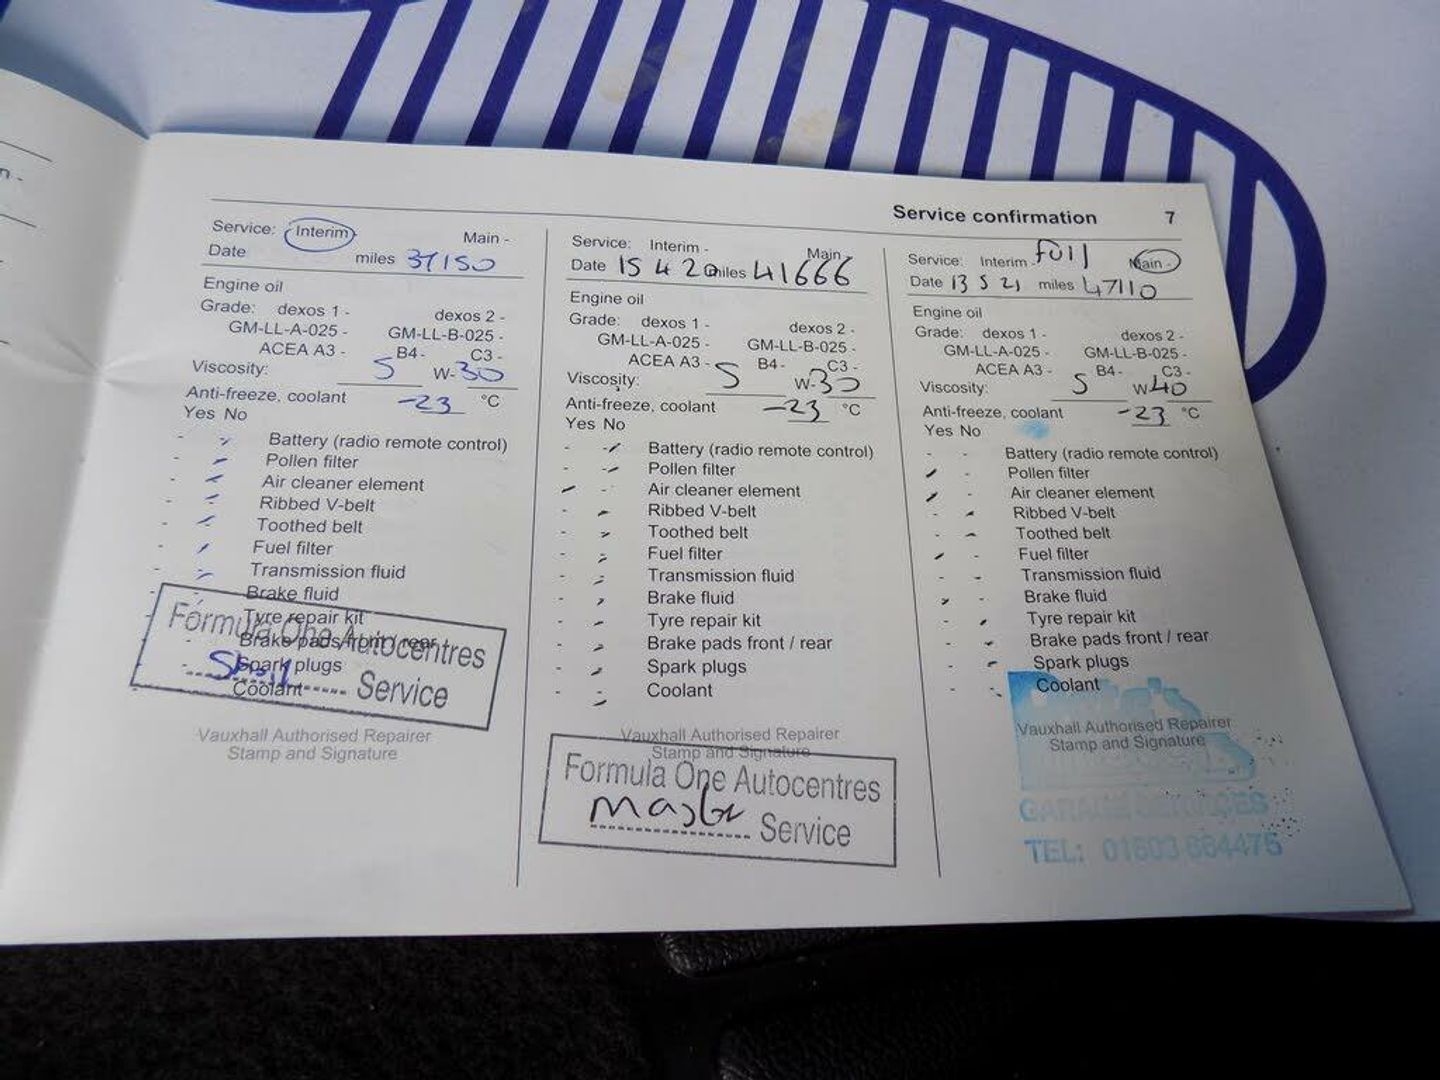 Service confirmation 7
Service: Interim Main -
Date miles 37150
Engine oil
Grade: dexos 1 - dexos 2 -
GM-LL-A-025 - GM-LL-B-025 -
ACEA A3 - B4 - C3 -
Viscosity: 5 W-30
Anti-freeze, coolant -23 °C
Yes No
- Battery (radio remote control)
- Pollen filter
- Air cleaner element
- Ribbed V-belt
- Toothed belt
- Fuel filter
- Transmission fluid
- Brake fluid
Tyre repair kit
Brake pads front / rear
Spark plugs
Coolant
Formula One Autocentres
Service
Vauxhall Authorised Repairer
Stamp and Signature
Service: Interim - Main
Date 15 4 20 miles 41666
Engine oil
Grade: dexos 1 - dexos 2 -
GM-LL-A-025 - GM-LL-B-025 -
ACEA A3 - B4 - C3 -
Viscosity: 5 W-30
Anti-freeze, coolant -23 °C
Yes No
- Battery (radio remote control)
- Pollen filter
- Air cleaner element
- Ribbed V-belt
- Toothed belt
- Fuel filter
- Transmission fluid
- Brake fluid
- Tyre repair kit
- Brake pads front / rear
- Spark plugs
- Coolant
Vauxhall Authorised Repairer
Stamp and Signature
Formula One Autocentres
Master Service
Service: Interim - Full Main -
Date 13 5 21 miles 47110
Engine oil
Grade: dexos 1 - dexos 2 -
GM-LL-A-025 - GM-LL-B-025 -
ACEA A3 - B4 - C3 -
Viscosity: 5 W-40
Anti-freeze, coolant -23 °C
Yes No
- - Battery (radio remote control)
- Pollen filter
- Air cleaner element
- Ribbed V-belt
- Toothed belt
- Fuel filter
- Transmission fluid
- Brake fluid
- Tyre repair kit
- Brake pads front / rear
- Spark plugs
- Coolant
Vauxhall Authorised Repairer
Stamp and Signature
GARAGE SERVICES
TEL: 01603 664475